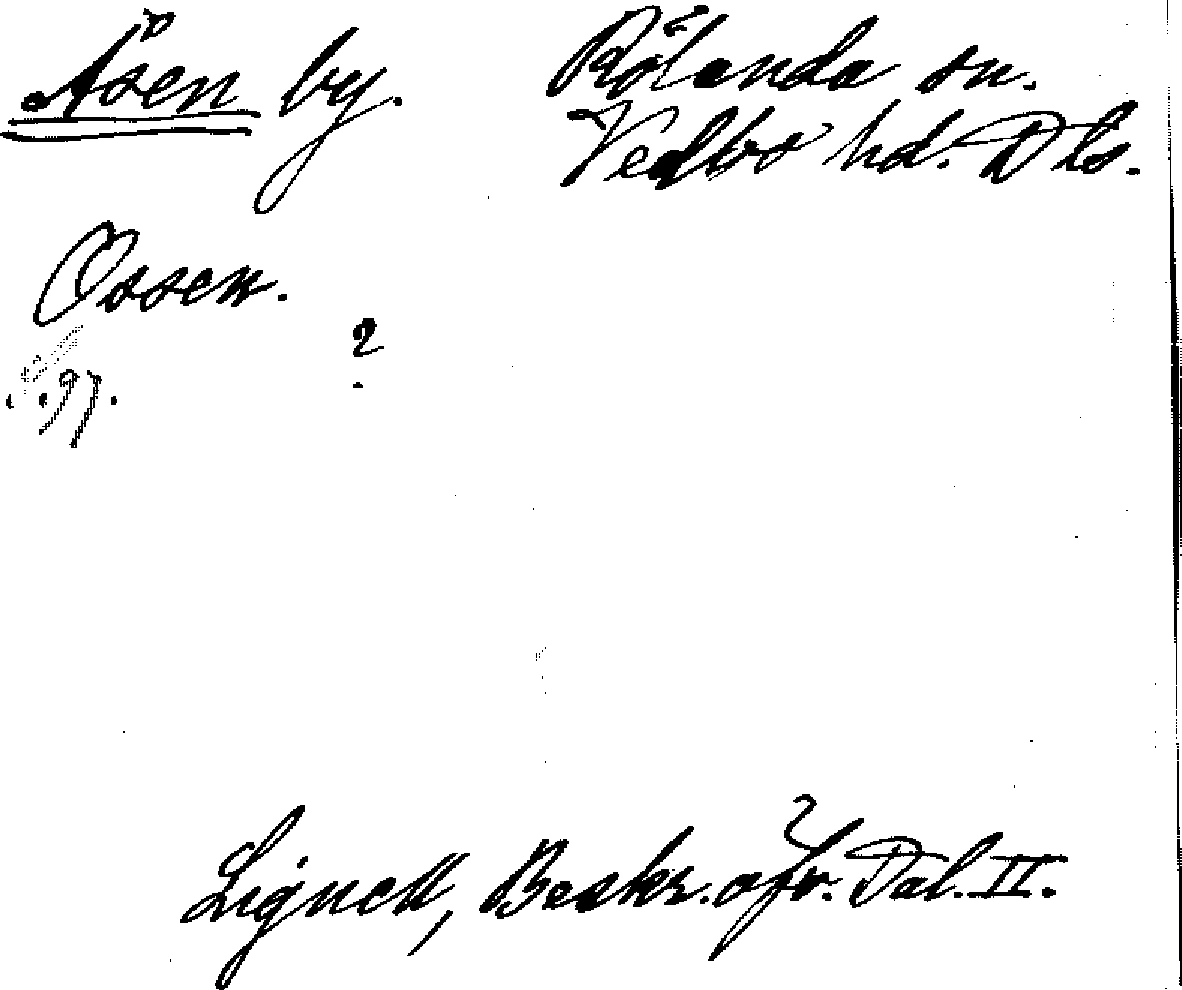 Åsen by. Rölanda sn.
Vedbo hd. Dls.
Ossen.
s. 97.
?
Lignell, Beskr. öfv. Dal. II.